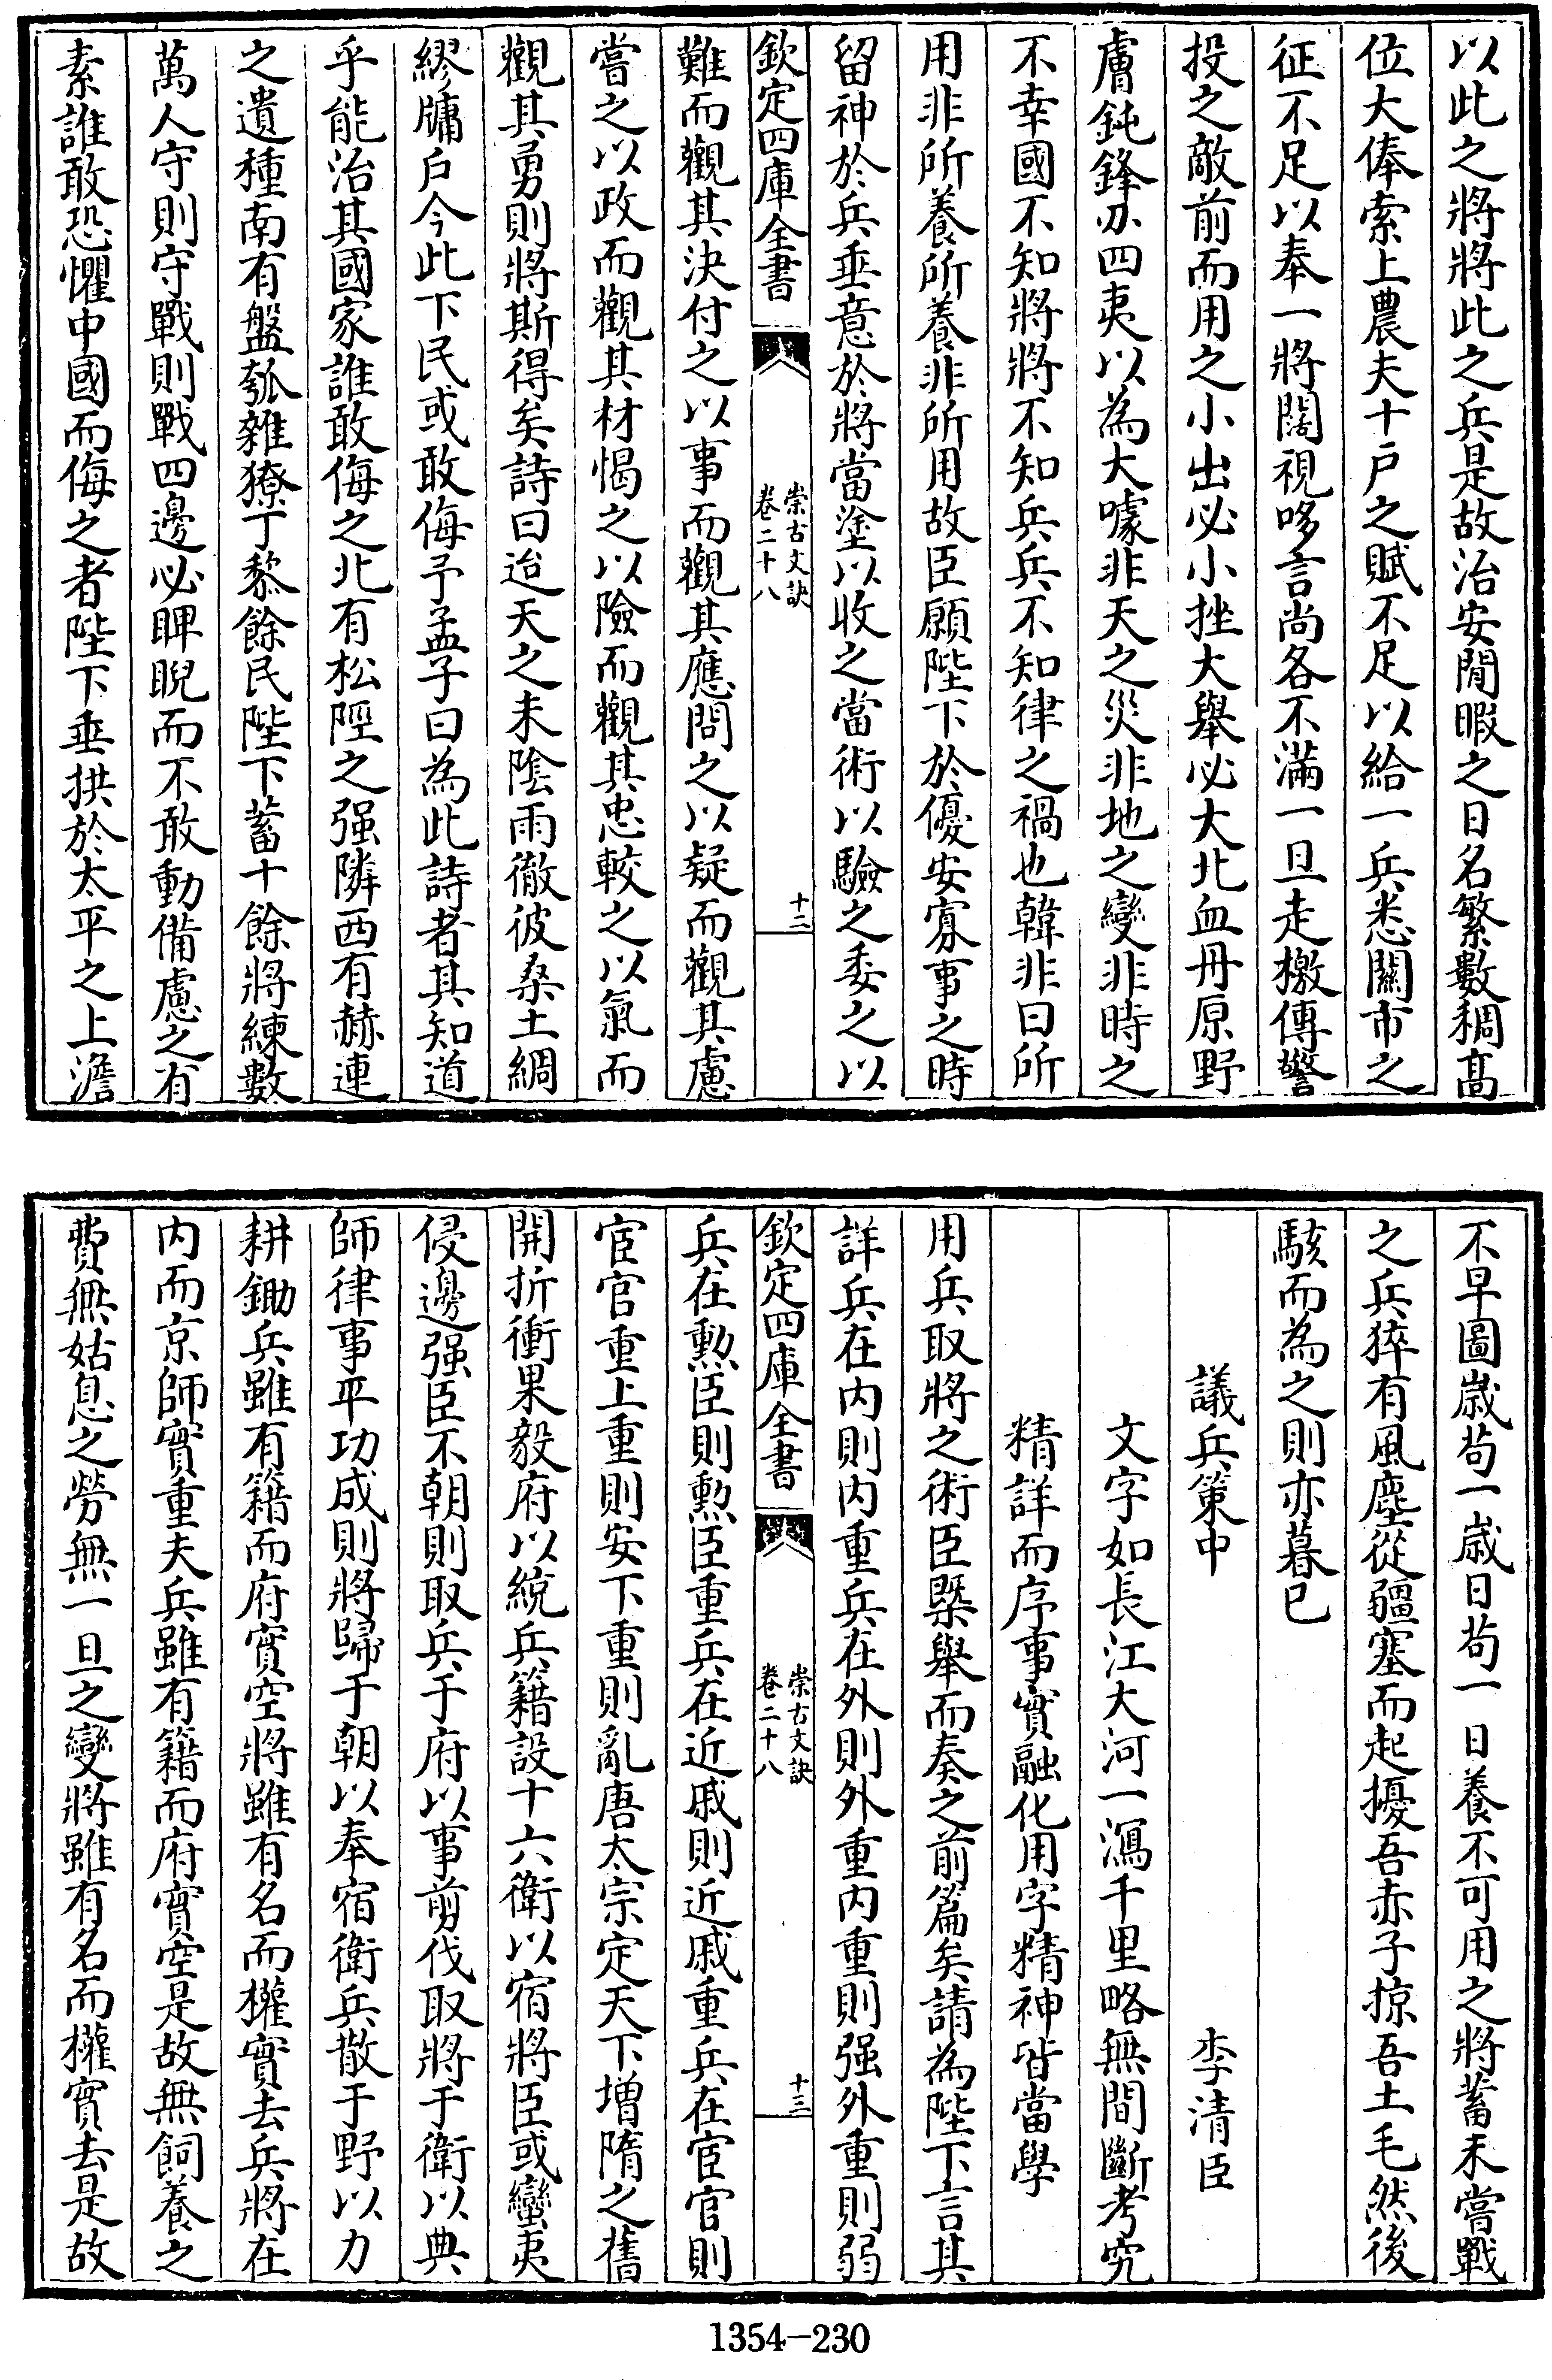 以此之將將此之兵是故治安閒暇之日名繁數稠髙
位大俸索上農夫十戶之賦不足以給一兵悉關市之
征不足以奉一將闊視哆言尚各不滿一旦走檄傳警
投之敵前而用之小出必小挫大舉必大北血丹原野
膚鈍鋒刃四夷以為大噱非天之災非地之變非時之
不幸國不知將將不知兵兵不知律之禍也韓非曰所
用非所養所養非所用故臣願陛下於優安寡事之時
留神於兵垂意於將當塗以收之當術以驗之委之以
欽定四庫全書
崇古文訣
卷二十八
十二
難而觀其決付之以事而觀其應問之以疑而觀其慮
嘗之以政而觀其材愒之以險而觀其忠較之以氣而
觀其勇則將斯得矣詩曰迨天之未陰雨徹彼桑土綢
繆牖户今此下民或敢侮予孟子曰為此詩者其知道
乎能治其國家誰敢侮之北有松陘之强隣西有赫連
之遺種南有盤瓠雜獠丁黎餘民陛下蓄十餘將練數
萬人守則守戰則戰四邊必睥睨而不敢動備慮之有
素誰敢恐懼中國而侮之者陛下垂拱於太平之上澹
不早圖歲茍一歲日茍一日養不可用之將蓄未嘗戰
之兵猝有風塵從疆塞而起擾吾赤子掠吾土毛然後
駭而為之則亦暮已
議兵策中 李清臣
文字如長江大河一瀉千里略無間斷考究
精詳而序事實融化用字精神皆當學
用兵取將之術臣槩舉而奏之前篇矣請為陛下言其
詳兵在内則内重兵在外則外重内重則强外重則弱
欽定四庫全書
崇古文訣
卷二十八
十三
兵在勲臣則勲臣重兵在近戚則近戚重兵在宦官則
宦官重上重則安下重則亂唐太宗定天下増隋之舊
開折衝果毅府以統兵籍設十六衛以宿將臣或蠻夷
侵邊强臣不朝則取兵于府以事剪伐取將于衛以典
師律事平功成則將歸于朝以奉宿衛兵散于野以力
耕鋤兵雖有籍而府實空將雖有名而權實去兵將在
内而京師實重夫兵雖有籍而府實空是故無飼養之
費無姑息之勞無一旦之變將雖有名而權實去是故
1354-230